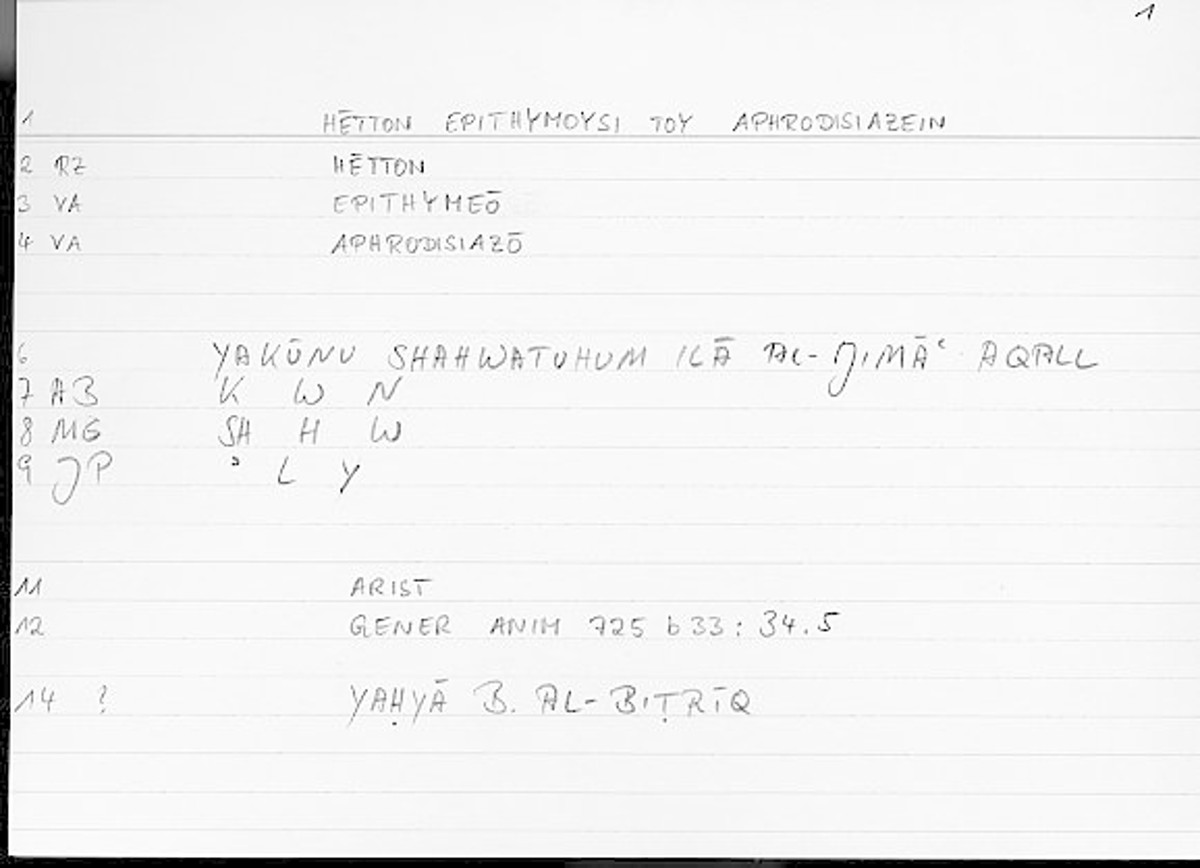 1
1 HĒTTON EPITHYMOYSI TOY APHRODISIAZEIN
2 RZ HĒTTON
3 VA EPITHYMEŌ
4 VA APHRODISIAZŌ
6 YAKŪNU SHAHWATUHUM ILĀ AL-JIMĀʿ AQALL
7 AB K W N
8 MG SH H W
9 JP ʾ L Y
11 ARIST
12 GENER ANIM 725 b 33 : 34.5
14 ? YAḤYĀ B. AL-BIṬRĪQ